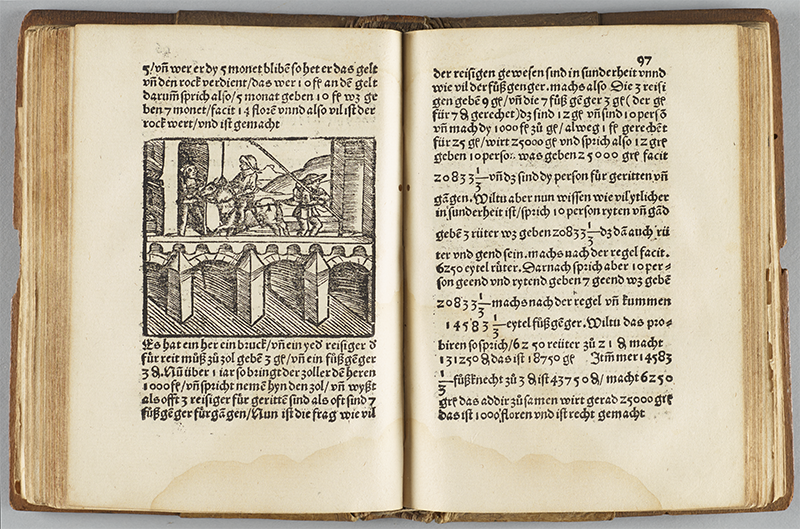 5/ vñ wer er dy 5 monet blibẽ so het er das gelt
vñ den rock verdient/das wer 10 fƚ an dẽ gelt
darum̃ sprich also/5 monat geben 10 fƚ wʒ ge
ben 7 monet/facit 14 florẽ vnnd also vil ist der
rock wert/vnd ist gemacht
Es hat ein her ein bruck/vñ ein yed reisiger d
für reit müß zů zol gebẽ 3 gƚ/vñ ein füßgẽger
3 ₰. Nů über 1 iar so bringt der zoller dẽ heren
1000 fƚ/vñ spricht nemẽ hyn den zol/vñ wyßt
als offt 3 reisiger für gerittẽ sind als oft sind 7
füßgẽger fürgãgen/Nun ist die frag wie vil
97
der reisigen gewesen sind in sunderheit vnnd
wie vil der füßgenger. machs also Die 3 reisi
gen gebẽ 9 gƚ/vñ die 7 füßgẽger 3 gƚ (der gƚ
für 7 ₰ gerechet) dʒ sind 12 gƚ vñ sind 10 persõ
vñ mach dy 1000 fƚ zů gƚ/alweg 1 fƚ gerechẽt
für 25 gƚ/wirt 25000 gƚ vnd sprich also 12 grƚ
geben 10 person. was geben 25000 grƚ facit
20833 1/3 vñ dʒ sind dy person für geritten vñ
gãgen. Wiltu aber nun wissen wie vil ytlicher
in sunderheit ist/sprich 10 person ryten vñ gãd
gebẽ 3 rüter wʒ geben 20833 1/3 dʒ dã auch rü
ter vnd gend sein. machs nach der regel facit.
6250 eytel rüter. Darnach sprich aber 10 per⸗
son geend vnd rytend geben 7 geend wʒ gebẽ
20833 1/3 machs nach der regel vñ kummen
14583 1/3 eytel füßgẽger. Wiltu das pro⸗
biren so sprich/6250 reüter zů 21 ₰ macht
131250 ₰ das ist 18750 gƚ Itm̃ mer 14583
1/3 füßknecht zů 3 ₰ ist 43750 ₰/ macht 6250
grƚ das addir zůsamen wirt gerad 25000 grƚ
das ist 1000 floren vnd ist recht gemacht